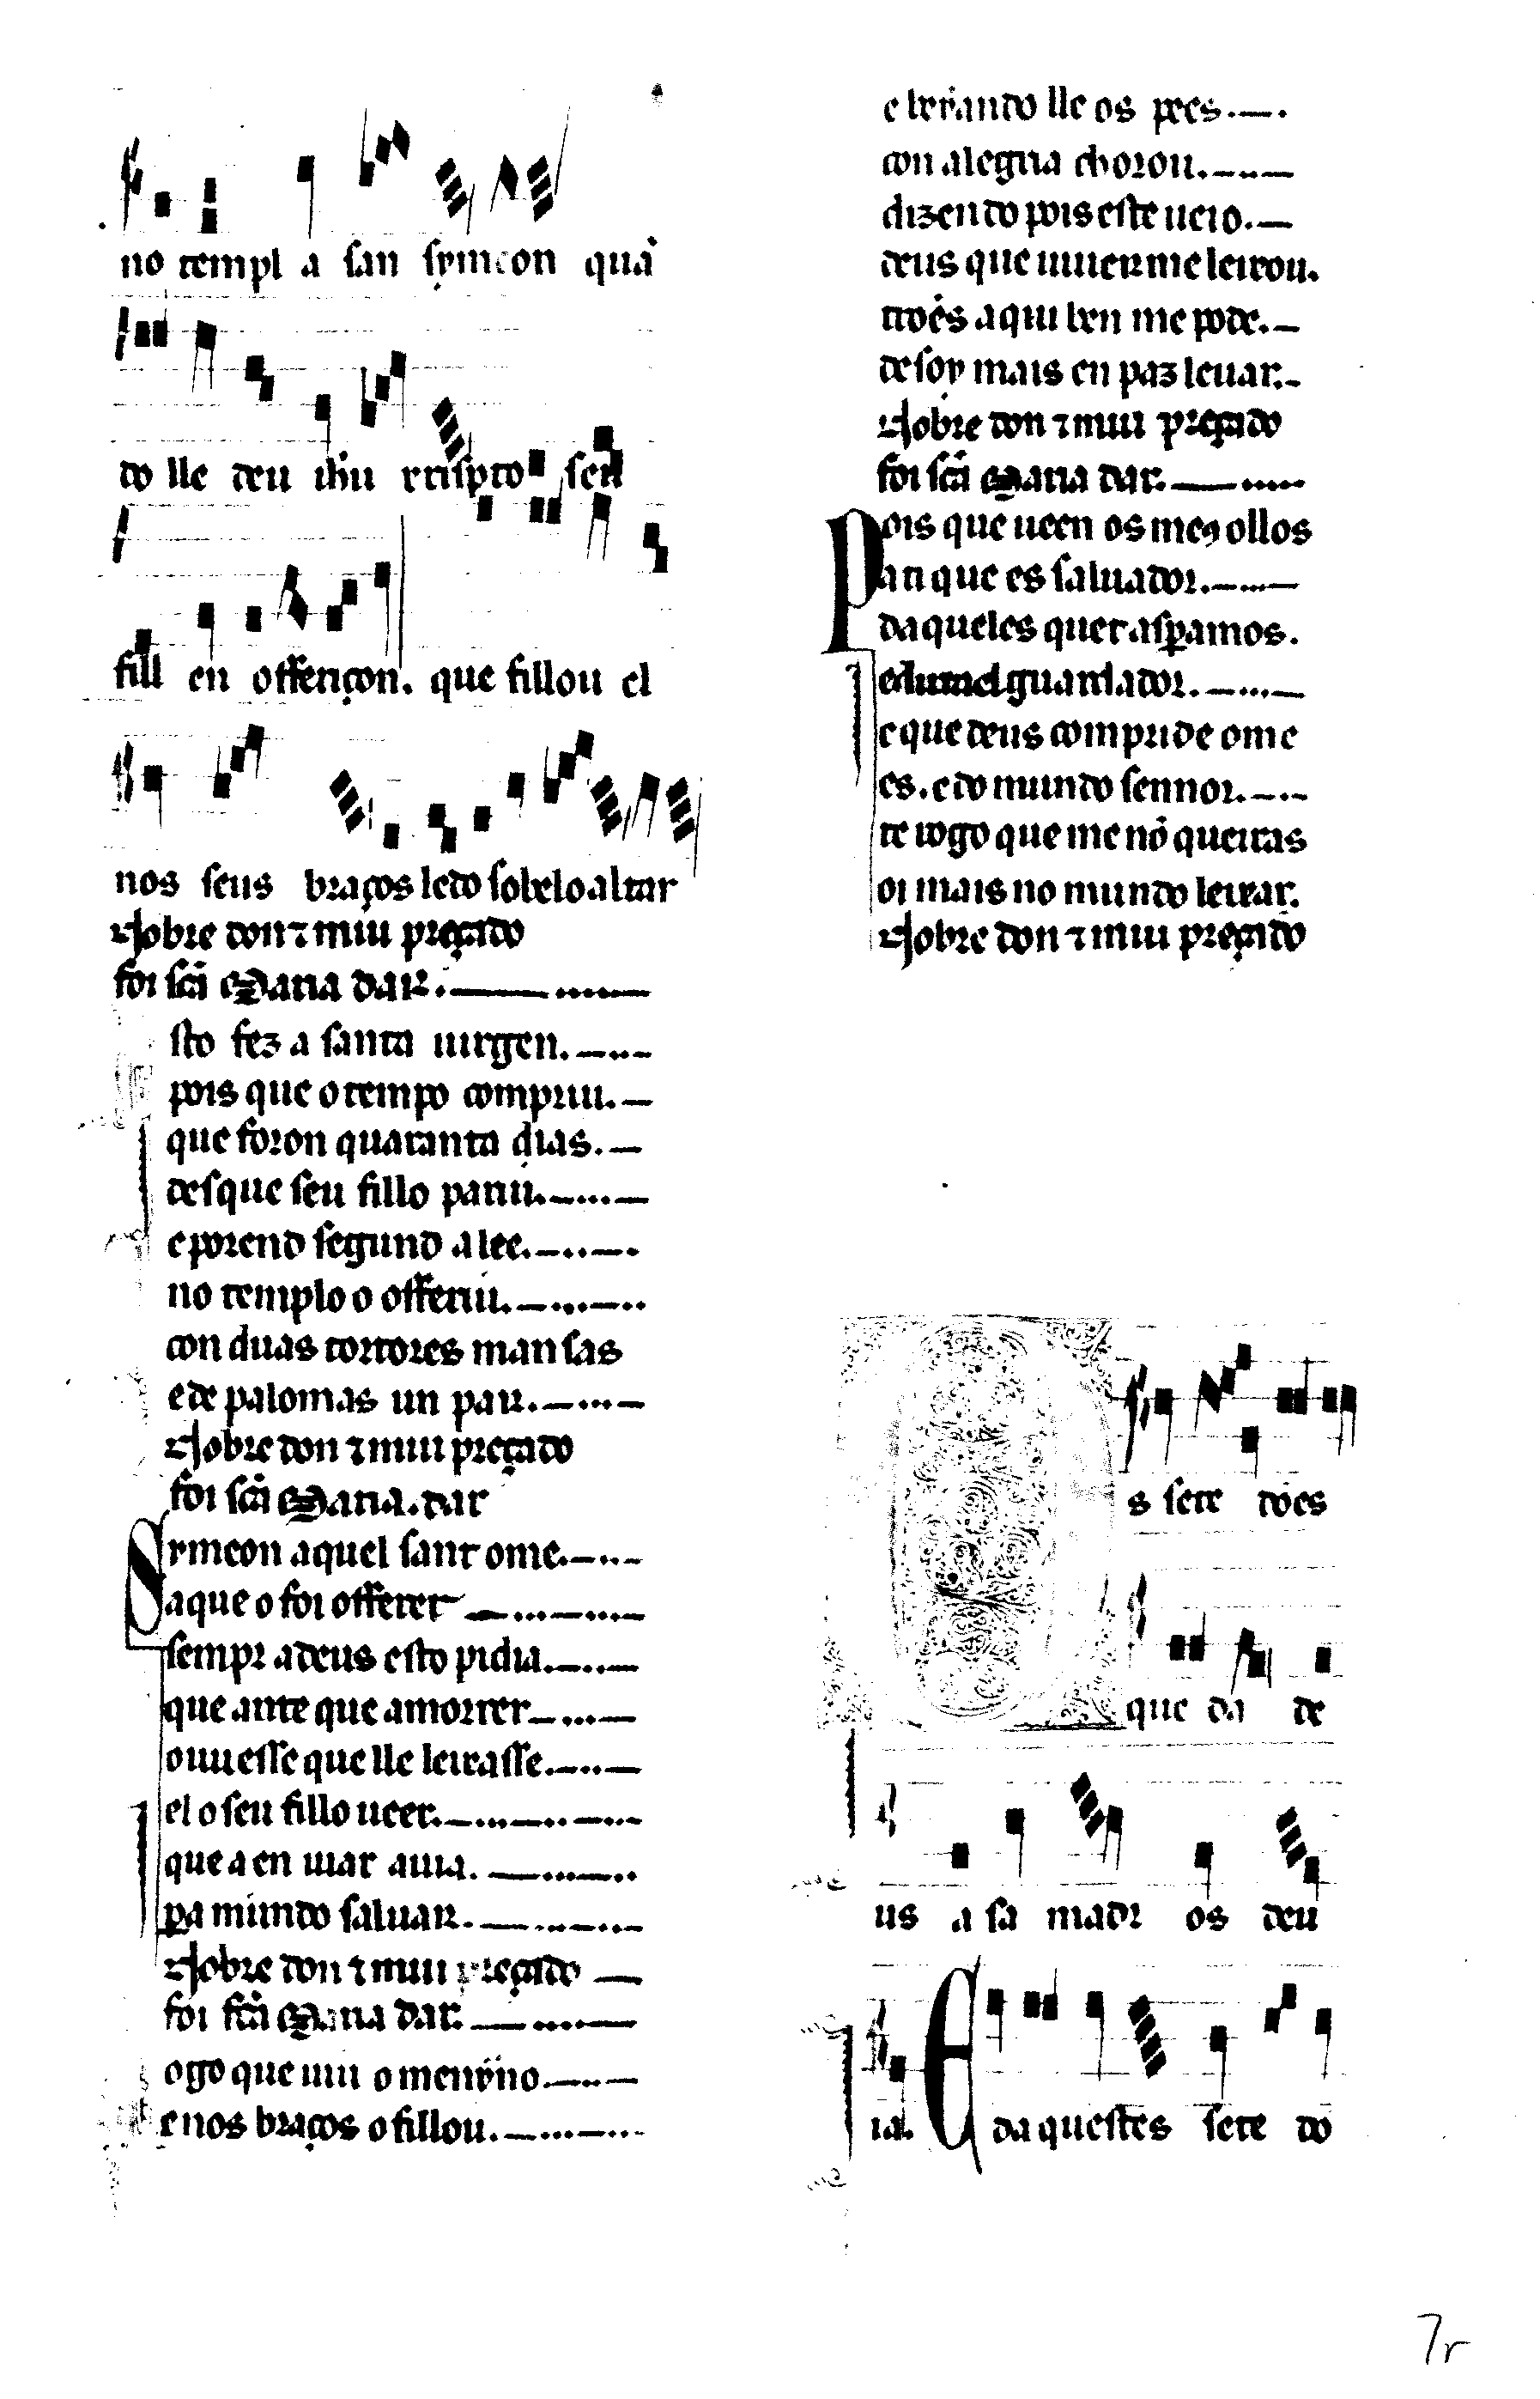 no templ a san symeon quã
do lle deu ihũ cristo seu
fill en offeriçon. que fillou el
nos seus braços ledo sobelo altar
Nobre don ⁊ mui preçado
foi scã Maria dar.
sto fez a santa uirgen.
pois que o tempo compriu.
que foron quaranta dias.
desque seu fillo pariu.
e porend segund a lee.
no templo o offeriu.
con duas tortores mansas
e de palomas un par.
Nobre don ⁊ mui preçado
foi scã Maria. dar
Symeon aquel sant ome.
a que o foi offerer
sempr a deus esto pidia.
que ante que a morrer
ouuesse que lle leixasse.
el o seu fillo ueer.
que a en uiar auia.
pa mundo saluar.
Nobre don ⁊ mui preçado
foi scã Maria dar.
ogo que uiu o menỹno.
e nos braços o fillou.
e beiiando lle os pees.
con alegria chorou.
dizendo pois este ueio.
deus que uiuer me leixou.
trões aqui ben me pode.
des oy mais en paz leuar.
Nobre don ⁊ mui preçado
foi scã Maria dar.
Pois que ueen os meꝯ ollos
a ti que es saluador.
daqueles quer asperamos.
guardador.
e que deus comprid e ome
es. e do mundo sennor.
te rogo que me nõ queiras
oi mais no mundo leixar.
Nobre don ⁊ mui preçado
s sete dões
que da de
us a sa madr os deu
ia. E daquestes sete do
7r